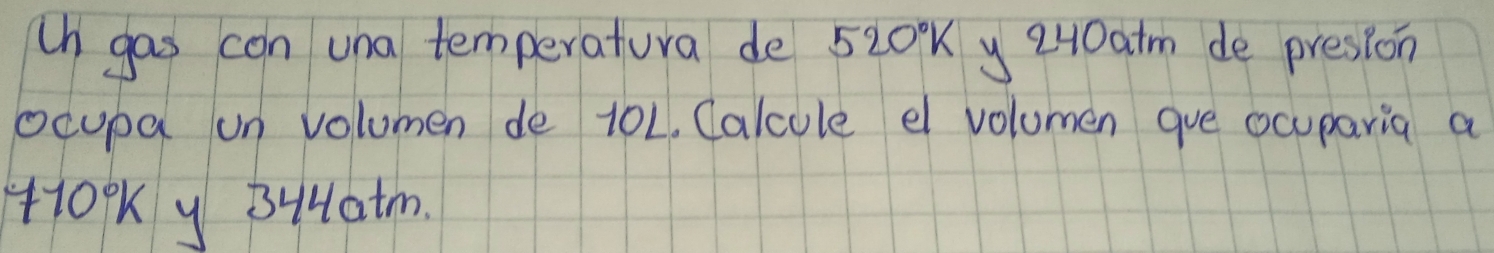 Un gas con una temperatura de 520°K y 240atm de presión
ocupa un volumen de 10L. Calcule el volumen que ocuparia a
710°K y 344atm.